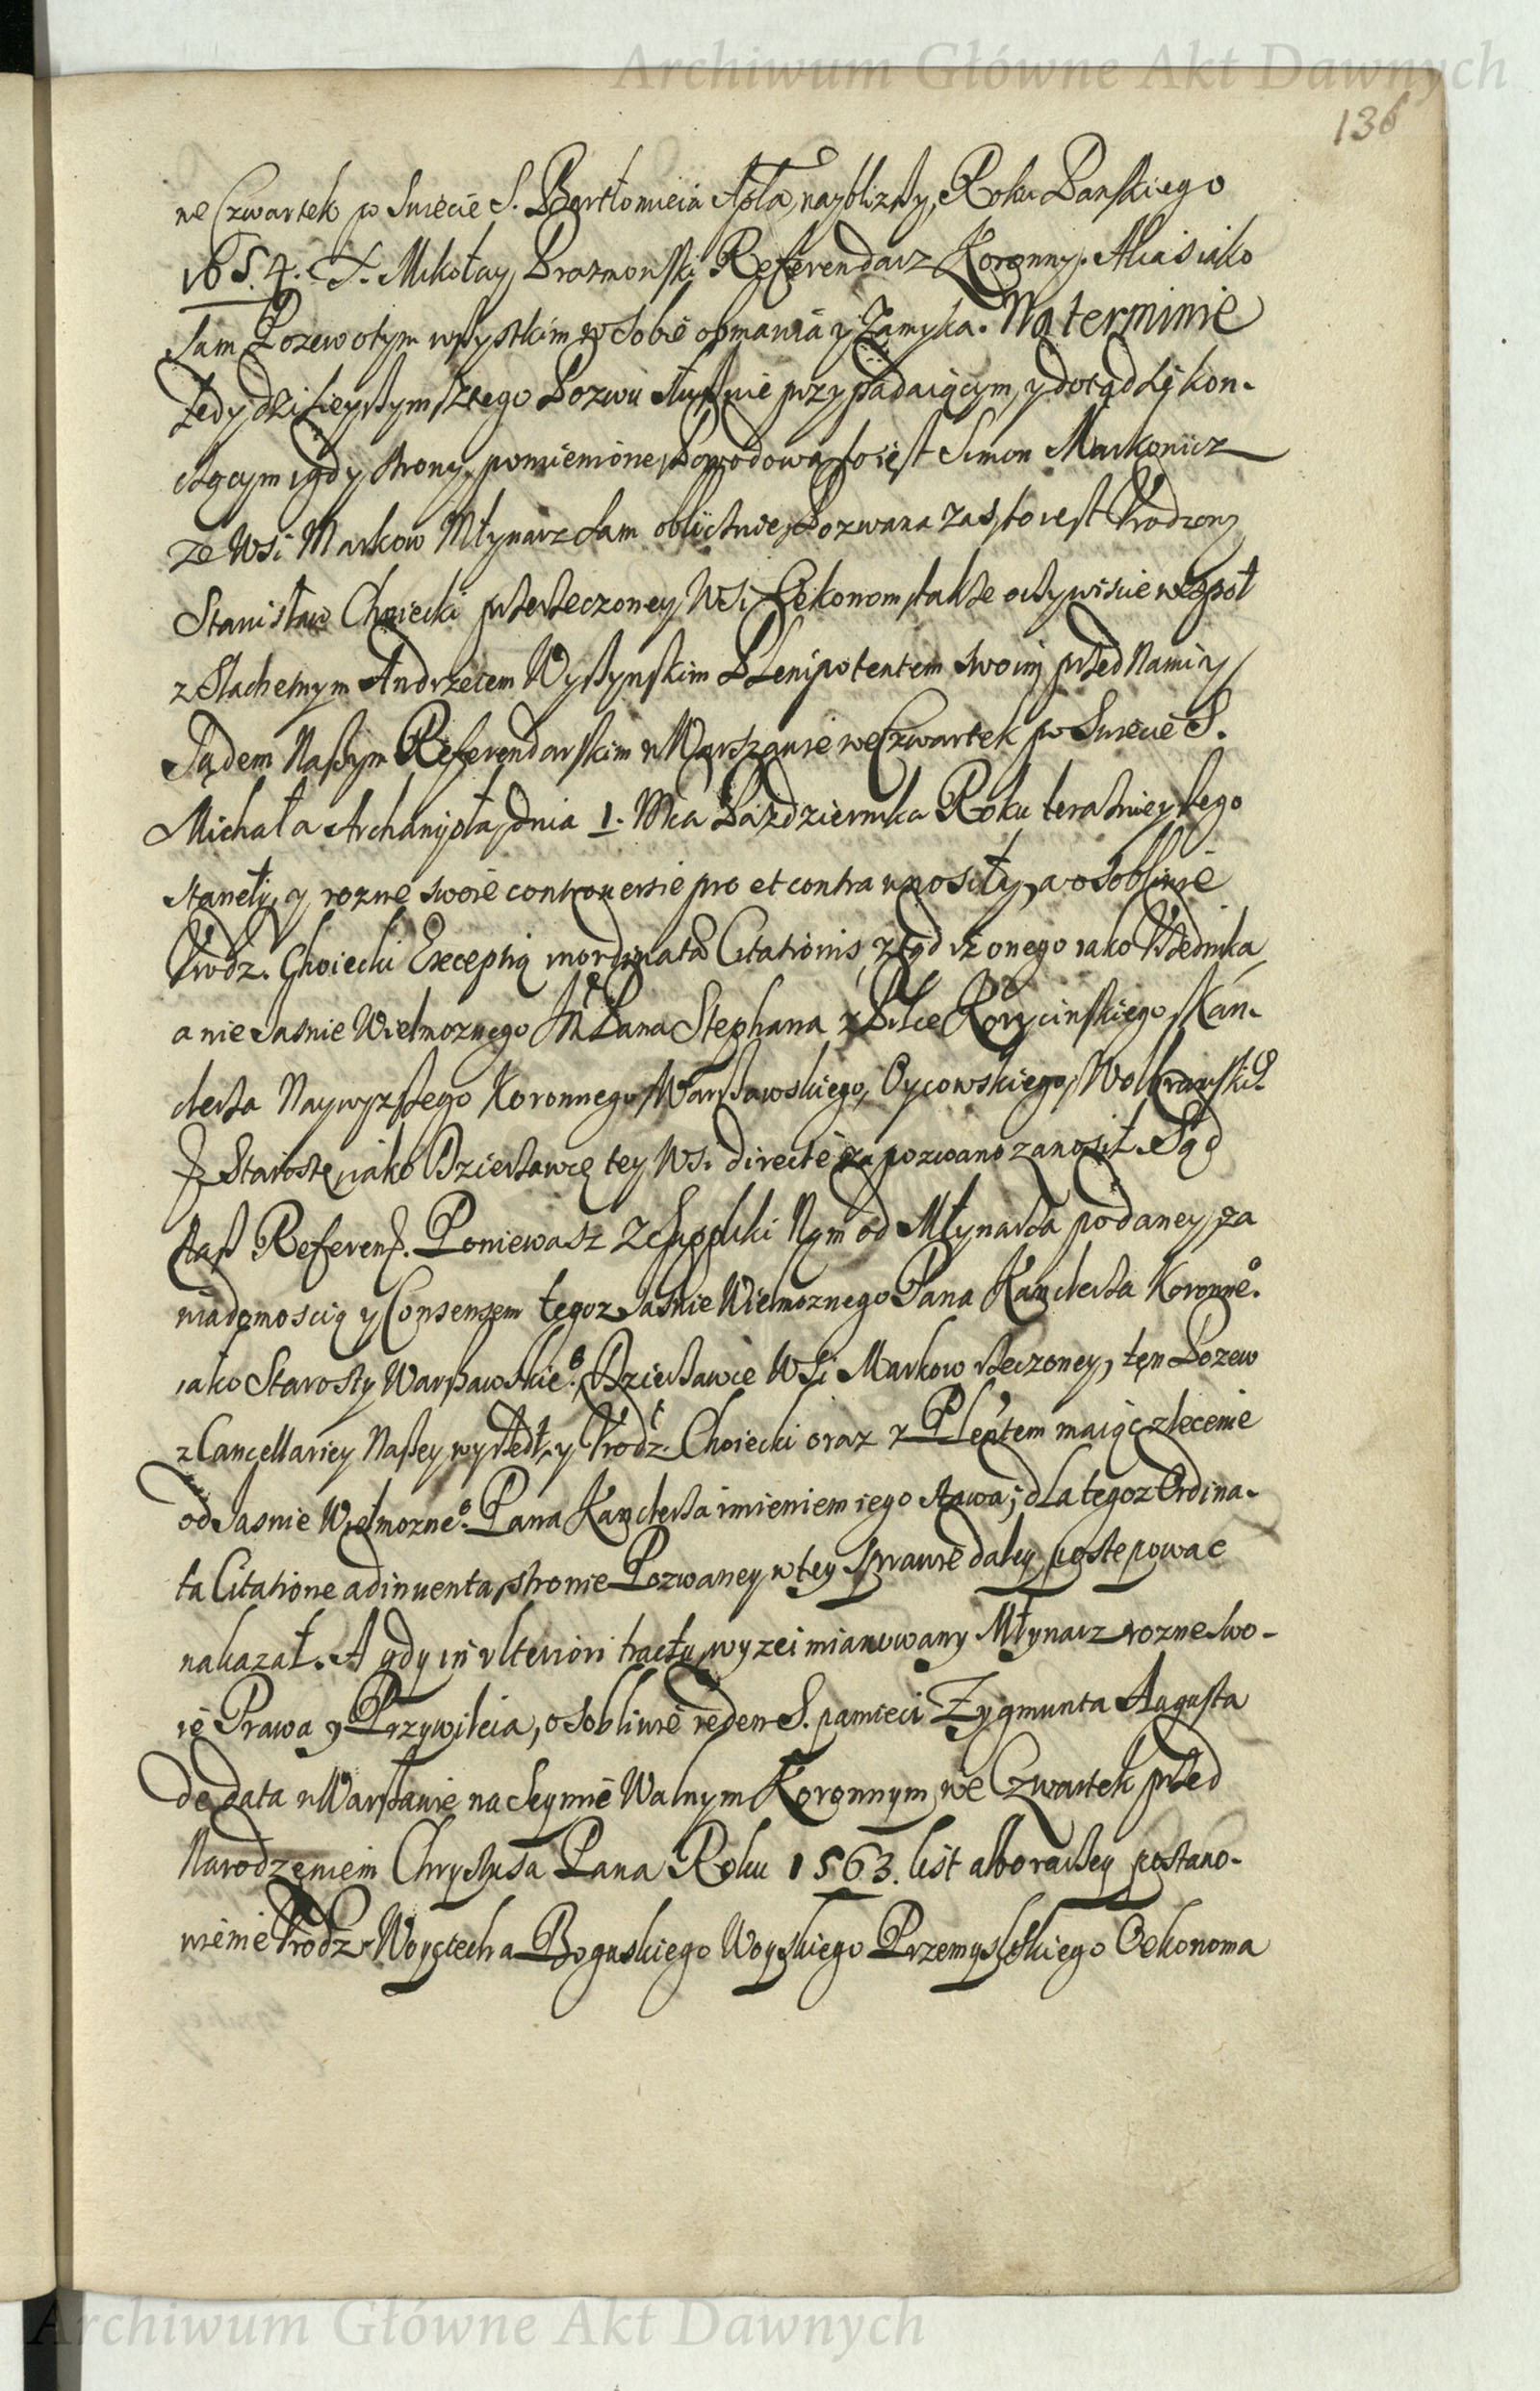 Archiwum Główne Akt Dawnych
136
we Czwartek po Swięcie S. Bartłomieia Apła, naybliższy, Roku Pańskiego
1654. X. Mikołay Prazmowski Referendarz Koronny. Aliàs iako
sam Pozew o tym wszystkim w sobie obmawia y Zamyka. Na terminie
tedy dzisieyszym z tego Pozwu słusznie przypadaiącym, y dotąd się kon-
cżącym gdy strony pomienione, Powodowa to iest Simon Markowicz
ze Wsi Markow Młynarz sam oblicznie, Pozwana zas, to iest Vrodzony
Stanisław Choiecki przerzeczoney Wsi Oekonom, także oczywiscie wespoł
z Slachetnym Andrzeiem Wyszynskim Plenipotentem swoim, przed Nami y
Sądem Naszym Referendarskim w Warszawie we Czwartek po Swięcie S.
Michała Archanyoła, dnia 1. Mca Pazdziernika Roku teraznieyszego
staneły, y rozne swoie controuersie pro et contra wnosiły, a osobliwie
Vrodz. Choiecki Exceptią inordinatæ Citationis, ztąd iż onego iako Vrzędnika,
a nie Jasnie Wielmoznego Pana Stephana z Pilce Korycinskiego, Kan-
clerza Naywyzszego Koronnego, Warszawskiego, Oycowskiego, Wolbramskiego
Starostę, iako Dzierżawcę tey Wsi directè zapozwano zanosił. Sąd
Nasz Referen. Poniewasz z Suppliki Nam od Młynarza podaney, za
wiadomoscią y Consensem tegoz Jasnie Wielmoznego Pana Kanclerza Koronneo.
iako Starosty Warszawskieo. Dzierżawce Wsi Markow rzeczoney, ten Pozew
z Cancellariey Naszey wyszedł, y Vrodz. Choiecki oraz z Plentem maiąc zlecenie
od Jasnie Wielmozneo. Pana Kanclerza imieniem iego stawa; dla tegoz Ordina-
ta Citatione adinuenta, stronie Pozwaney w tey sprawie daley postepowac
nakazał. A gdy in vlteriori tractu, wyzei mianowany Młynarz rozne swo-
ie Prawa y Przywileia, osobliwie ieden S. pamieci Zygmunta Augusta
de data w Warszawie na Seymie Walnym Koronnym, we Czwartek przed
Narodzeniem Chrystusa Pana Roku 1563. list albo raczey postano-
wienie Vrodz. Woyciecha Boguskiego Woyskiego Przemyslskiego Oekonoma
Archiwum Główne Akt Dawnych